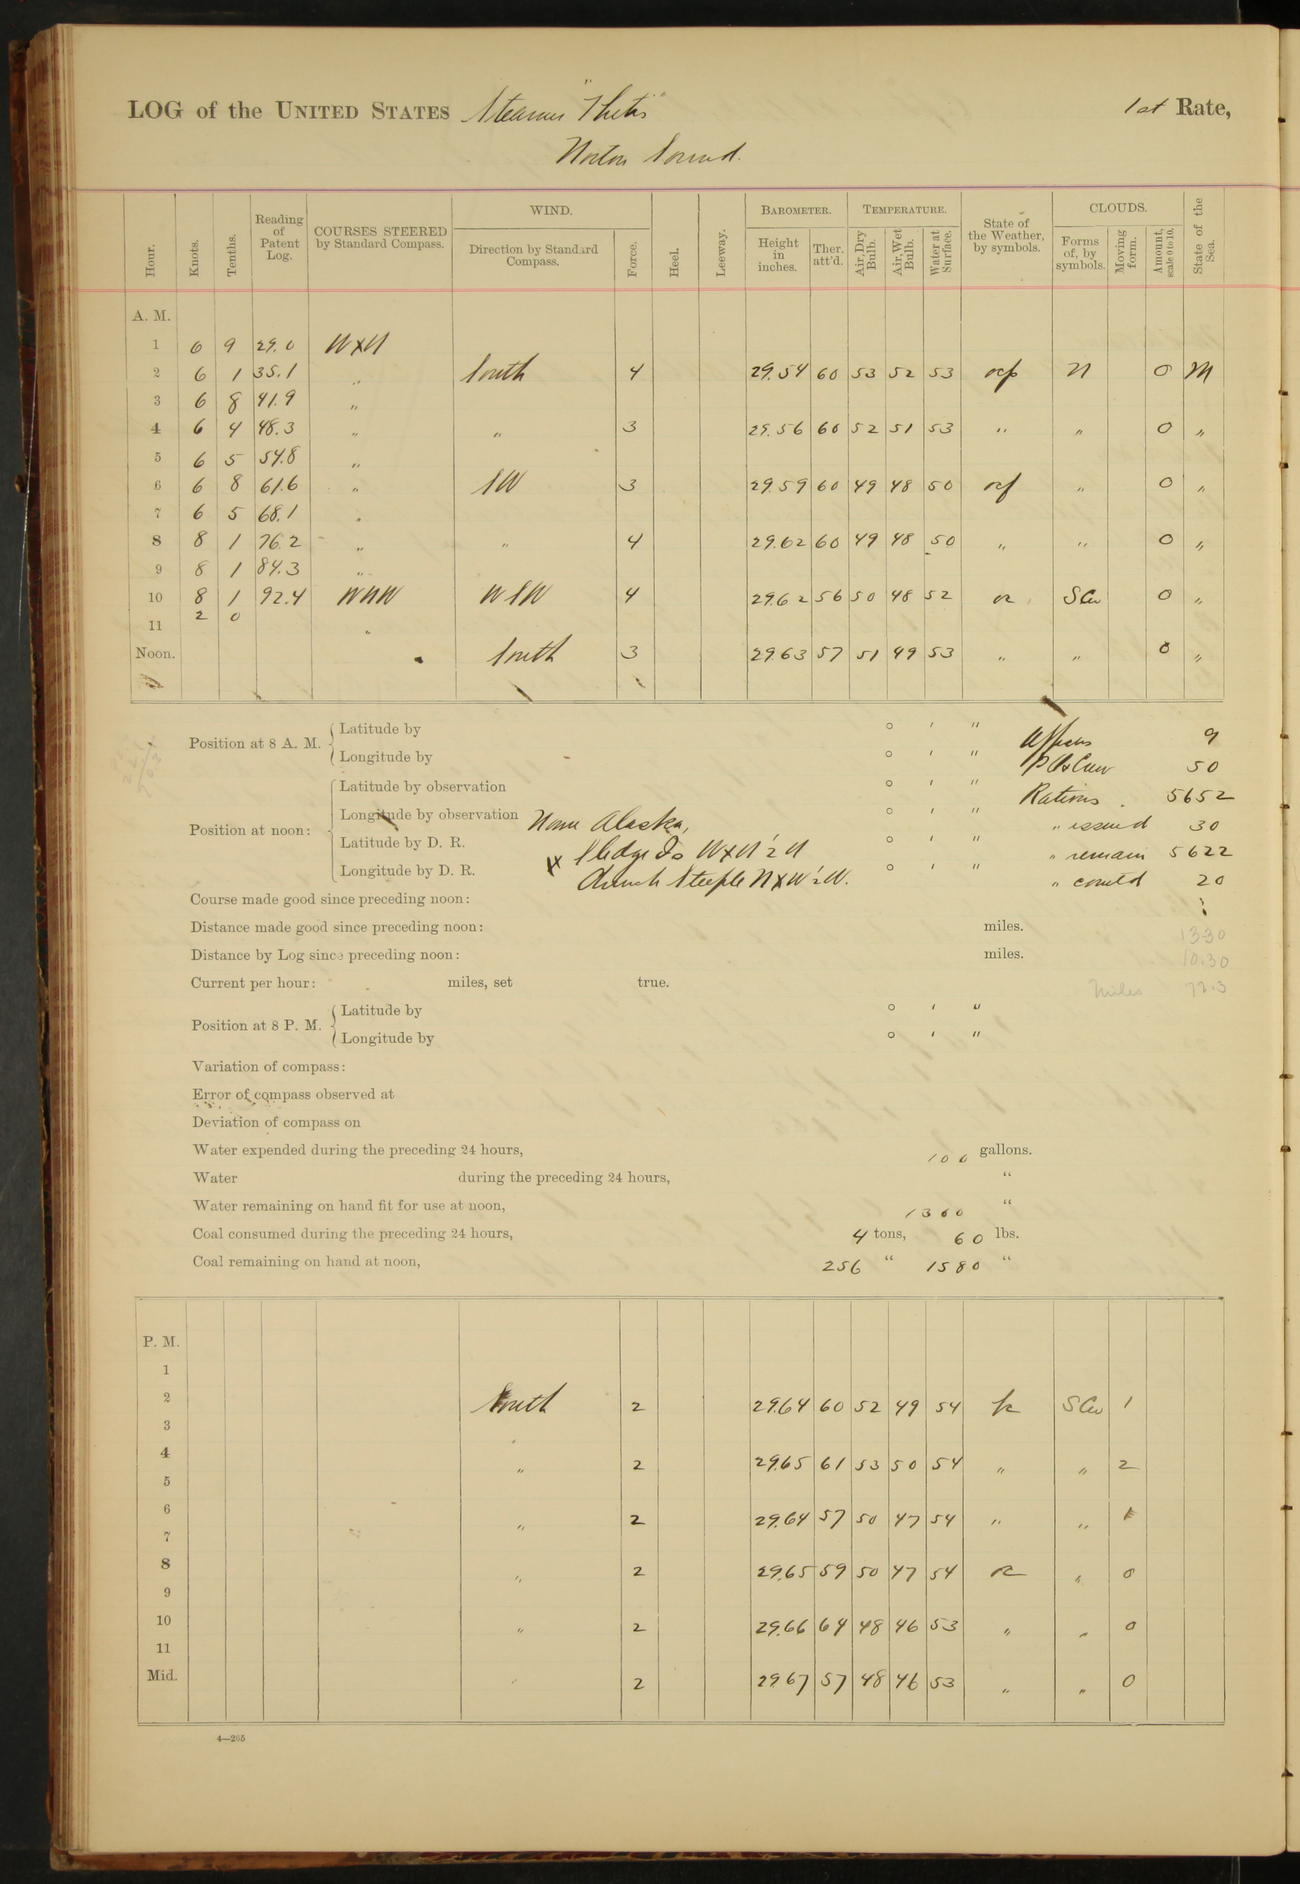 LOG of the UNITED STATES Steamer "Thetis" 1st Rate,
Norton Sound.
Hour. Knots. Tenths. Reading of Patent Log. COURSES STEERED by Standard Compass. WIND. Direction by Standard Compass. Force. Heel. Leeway. BAROMETER. Height in inches. Ther. att'd. TEMPERATURE. Air, Dry Bulb. Air, Wet Bulb. Water at Surface. State of the Weather, by symbols. CLOUDS. Forms of, by symbols. Moving form. Amount, scale 0 to 10. State of the Sea.
A. M.
1 6 9 29.0 WxN
2 6 1 35.1 " South 4 29.54 60 53 52 53 ocp N 0 M
3 6 8 41.9 "
4 6 4 48.3 " " 3 29.56 60 52 51 53 " " 0 "
5 6 5 54.8 "
6 6 8 61.6 " SW 3 29.59 60 49 48 50 ocf " 0 "
7 6 5 68.1 "
8 8 1 76.2 " " 4 29.62 60 49 48 50 " " 0 "
9 8 1 84.3 "
10 8 1 92.4 WNW WSW 4 29.62 56 50 48 52 oc SCu 0 "
11 2 0 "
Noon. South 3 29.63 57 51 49 53 " " 0 "
Position at 8 A. M. Latitude by ° ' " Officers 9
Longitude by ° ' " Crew 50
Position at noon: Latitude by observation ° ' " Rations 5652
Longitude by observation Nome Alaska, ° ' " " issued 30
Latitude by D. R. Sledge Is WxN ½ N ° ' " " remain 5622
Longitude by D. R. Church Steeple NxW ½ W. ° ' " " comt'd 20
Course made good since preceding noon:
Distance made good since preceding noon: miles. 1330
Distance by Log since preceding noon: miles. 10.30
Current per hour: miles, set true. Miles 77.3
Position at 8 P. M. Latitude by ° ' "
Longitude by ° ' "
Variation of compass:
Error of compass observed at
Deviation of compass on
Water expended during the preceding 24 hours, 100 gallons.
Water during the preceding 24 hours, "
Water remaining on hand fit for use at noon, 1360 "
Coal consumed during the preceding 24 hours, 4 tons, 60 lbs.
Coal remaining on hand at noon, 256 " 1580 "
P. M.
1
2 South 2 29.64 60 52 49 54 bc SCu 1
3
4 " 2 29.65 61 53 50 54 " " 2
5
6 " 2 29.64 57 50 47 54 " " 1
7
8 " 2 29.65 59 50 47 54 oc " 0
9
10 " 2 29.66 64 48 46 53 " " 0
11
Mid. " 2 29.67 57 48 46 53 " " 0
4—205